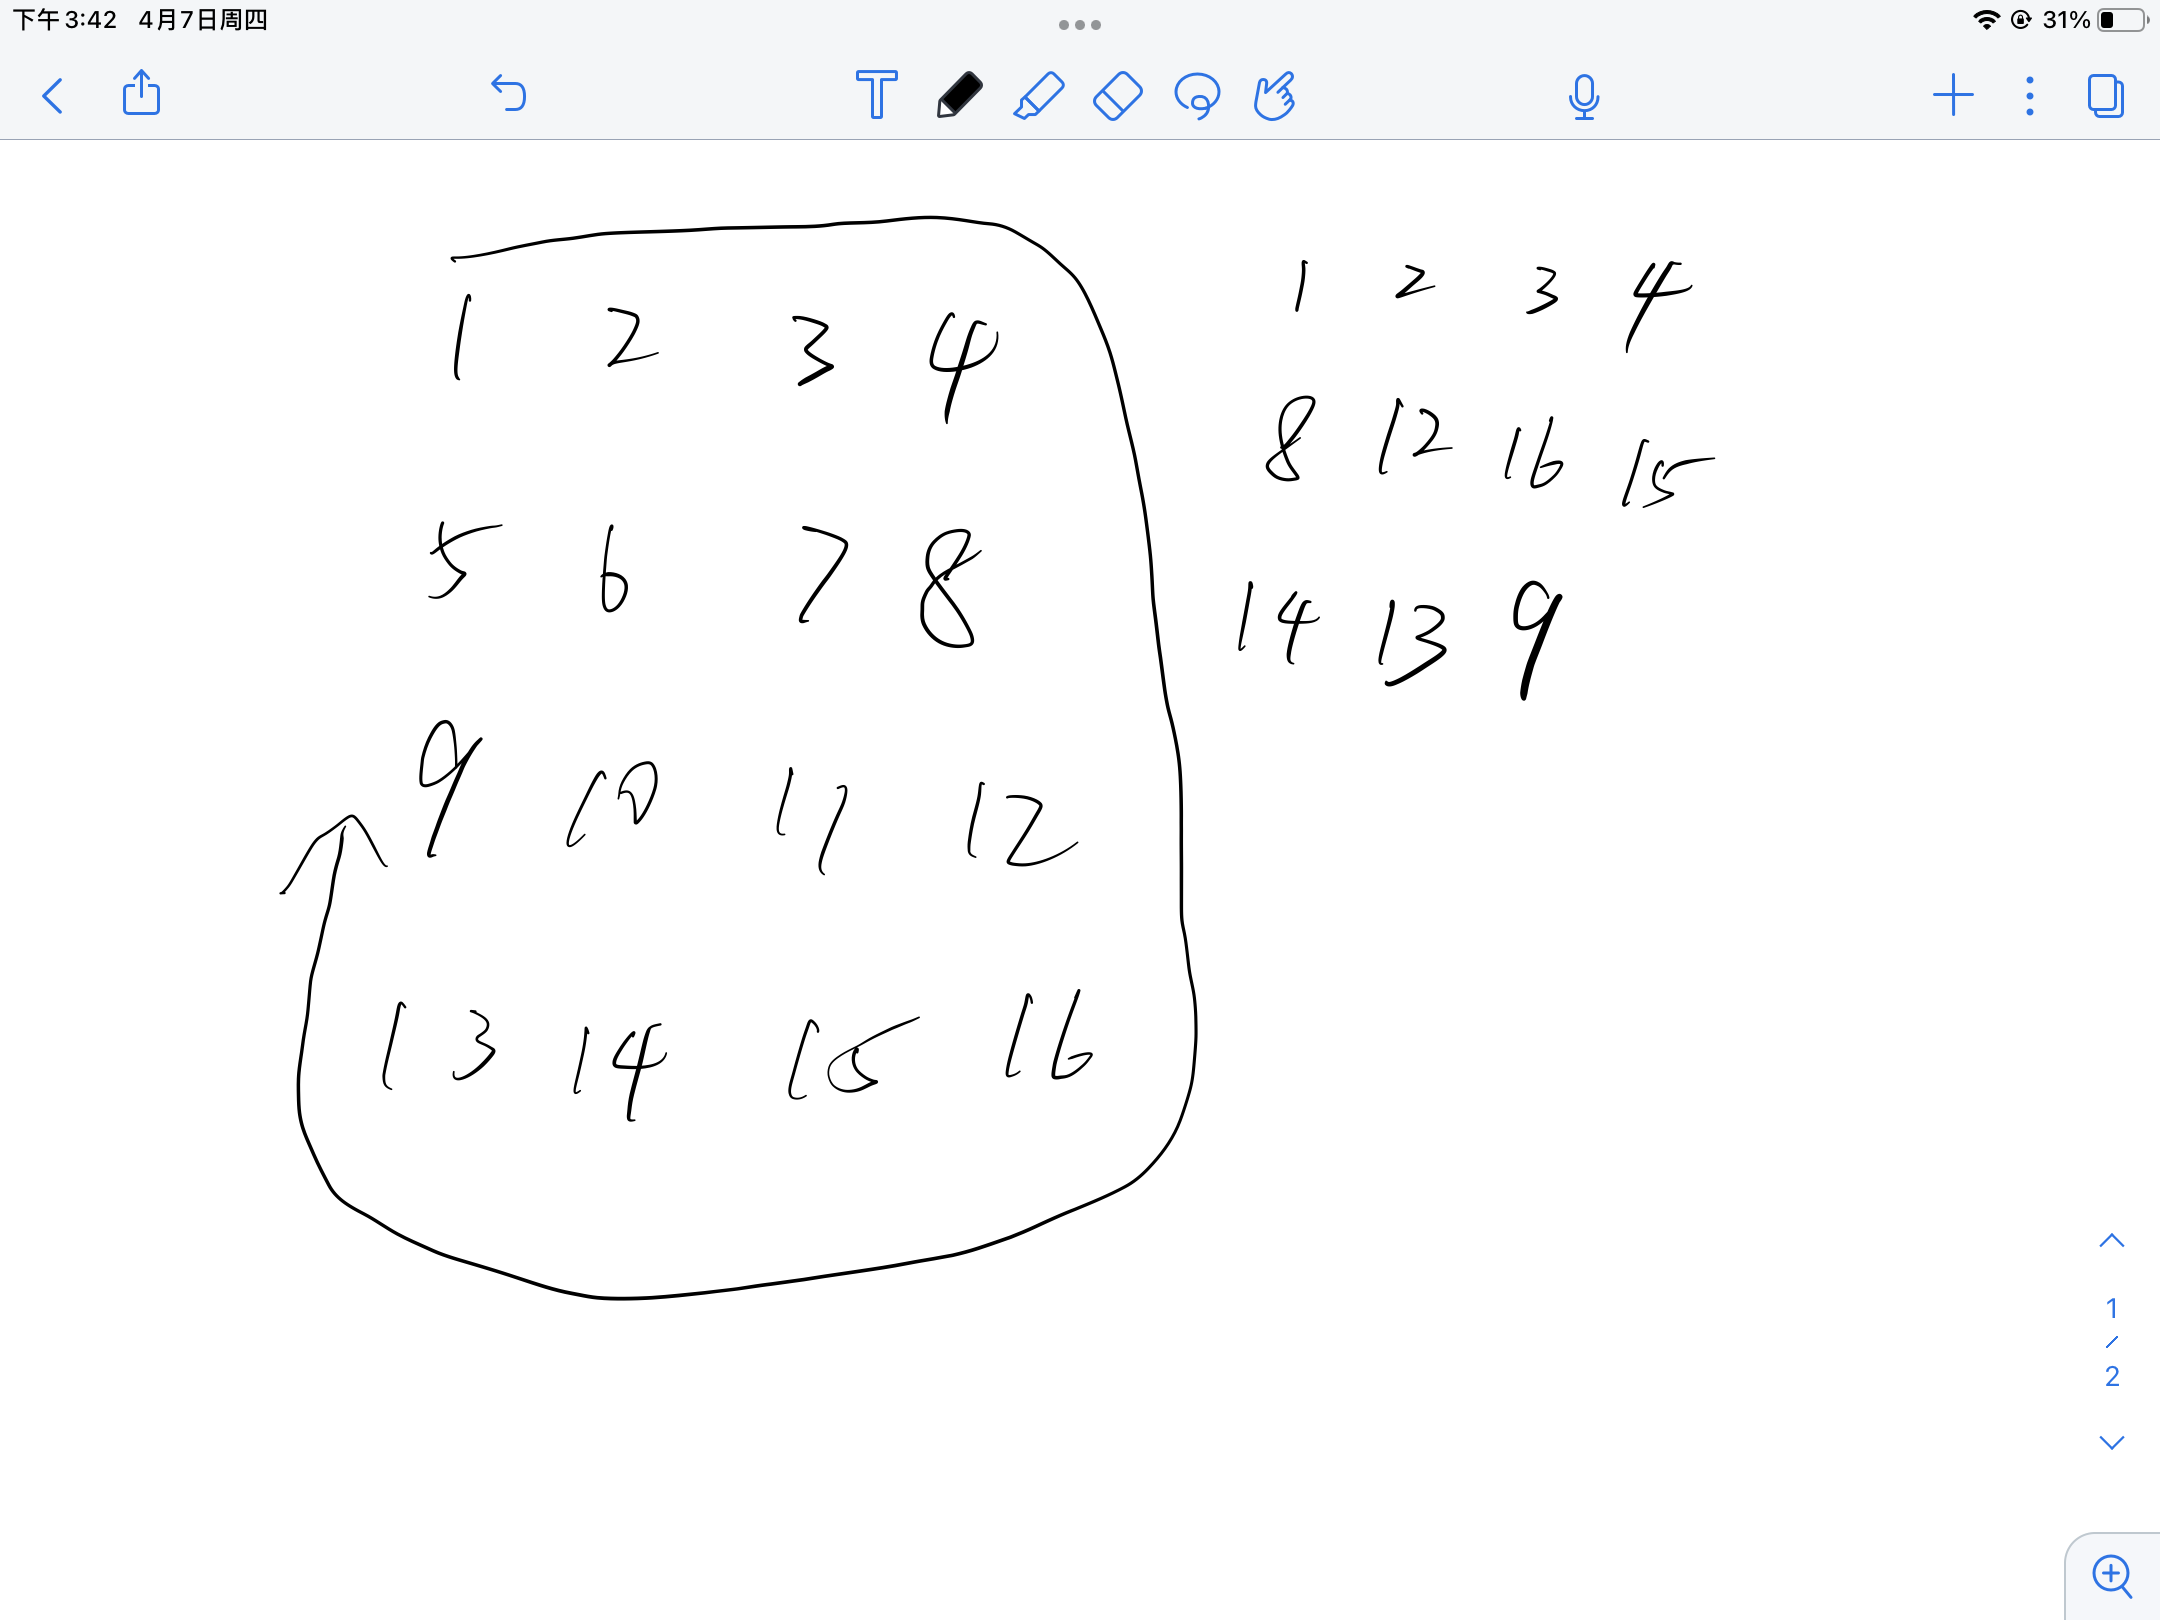 下午3:42 4月7日周四
31%
T
1 2 3 4
5 6 7 8
9 10 11 12
13 14 15 16
1 2 3 4
8 12 16 15
14 13 9
1
/
2